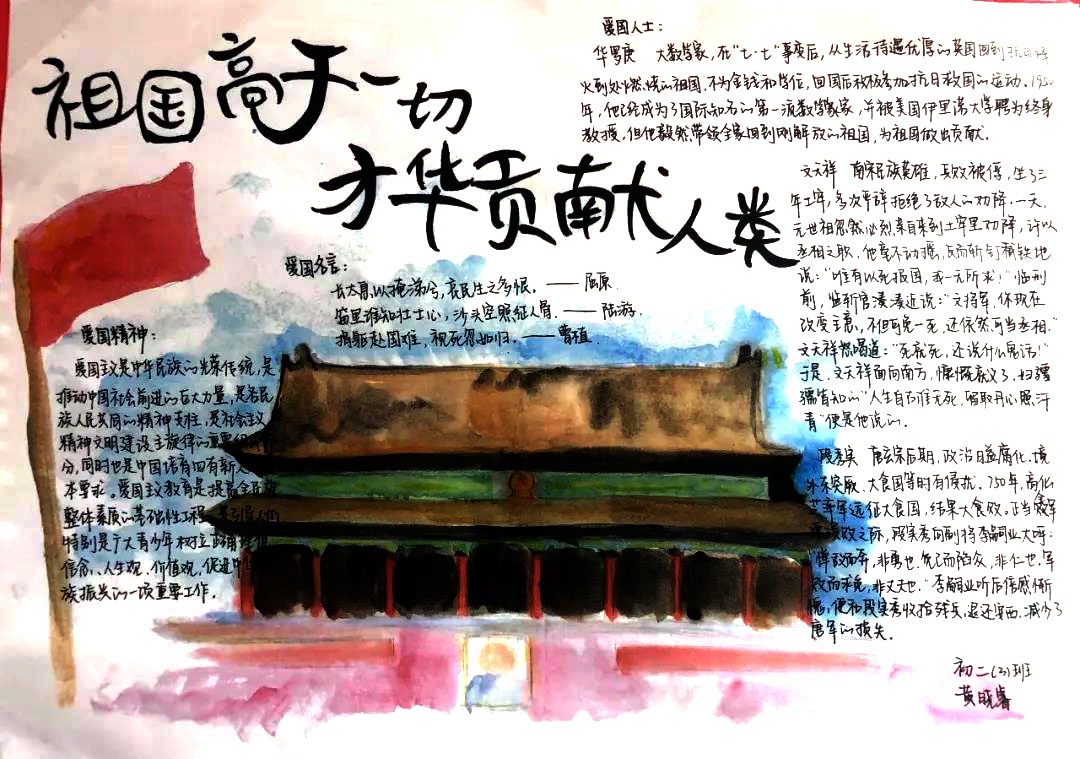 祖国高于一切
才华贡献人类
爱国人士:
华罗庚 大数学家,在"七·七"事变后,从生活待遇优厚的英国回到抗日烽
火到处燃烧的祖国,不为金钱和学位,回国后积极参加抗日救国的运动。1950
年,他已经成为了国际知名的第一流数学家,并被美国伊里诺大学聘为终身
教授,但他毅然带领全家回到刚解放的祖国,为祖国做出贡献.
文天祥 南宋民族英雄,兵败被俘,坐了三
年土牢,多次严辞拒绝了敌人的劝降,一天,
元世祖忽然必烈亲自来到土牢里劝降,许以
丞相之职,他毫不动摇,反而斩钉截铁地
说:"唯有以死报国,我一无所求!"临刑
前,监斩官凑近说:"文将军,你现在
改变主意,不但可免一死,还依然可当丞相."
文天祥怒喝道:"死就死,还说什么鬼话!"
于是,文天祥面向南方,慷慨就义了,妇孺
皆知的"人生自古谁无死,留取丹心照汗
青"便是他说的.
段秀实 唐玄宗后期,政治日益腐化,境
外突厥、大食国等时有侵扰。750年,高仙
芝率军远征大食国,结果大食败。正当
溃败之际,段秀实向副将李嗣业大呼:
"惮敌而奔,非勇也.免己而陷众,非仁也.军
败而求免,非义也."李嗣业听后倍感惭
愧,便和段秀实收拾残兵,退还安西,减少了
唐军的损失.
爱国名言:
长太息以掩涕兮,哀民生之多恨。——屈原.
笛里谁知壮士心,沙头空照征人骨。——陆游.
捐躯赴国难,视死忽如归.——曹植.
爱国精神:
爱国主义是中华民族的光荣传统,是
推动中国社会前进的巨大力量,是各民
族人民共同的精神支柱,是社会主义
精神文明建设主旋律的重要组成部
分,同时也是中国培育四有新人的基
本要求。爱国主义教育是提高全民族
整体素质的基础性工程,是引导人们
特别是广大青少年树立正确理想、
信念、人生观、价值观,促进中华民
族振兴的一项重要工作.
初二(3)班
黄晓睿